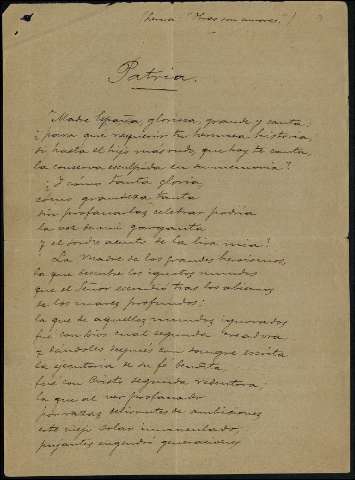 (Lema "Obras son amores.")
Patria.
Madre España, gloriosa, grande y santa:
¿para qué requerir tu hermosa historia,
si hasta el hijo más rudo, que hoy te canta,
la conserva esculpida en su memoria?
¿Y cómo tanta gloria,
cómo grandeza tanta
sin profanarlas celebrar podría
la voz de mi garganta
y el sordo acento de la lira mía?
La Madre de los grandes heroismos,
la que descubre los ignotos mundos
que el Señor escondió tras los abismos
de los mares profundos;
la que de aquellos mundos ignorados
fué con Dios cual segunda creadora
y dándoles después con sangre escrita
la ejecutoria de su fé bendita
fué con Cristo segunda redentora;
la que al ver profanado
por razas delirantes de ambiciones
este viejo solar inmaculado,
pujantes engendró generaciones